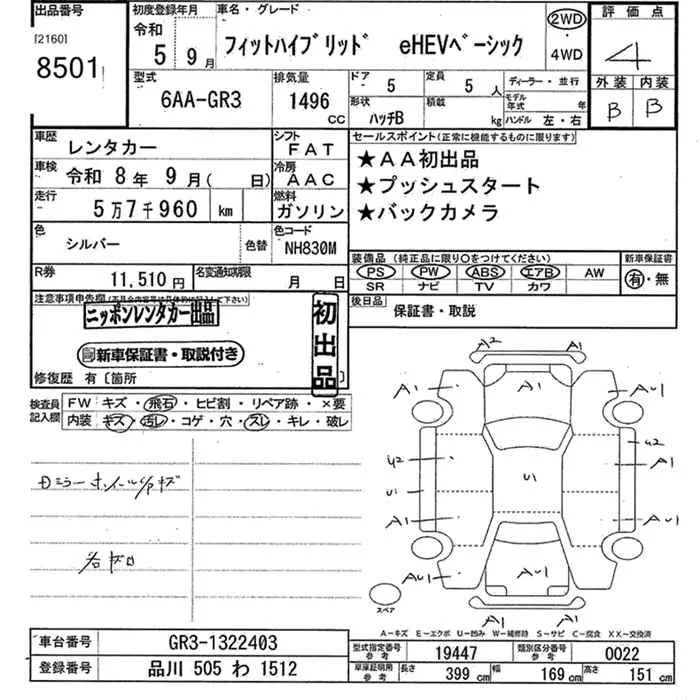 出品番号
[2160]
8501
初度登録年月
令和
5 9 月
車名・グレード
フィットハイブリッド eHEVベーシック
2WD
4WD
評価点
4
外装 内装
B B
型式
6AA-GR3
排気量
1496
CC
ドア
5
定員
5 人
形状
ハッチB
積載
kg
ディーラー・並行
モデル年式 年
ハンドル 左・右
車歴
レンタカー
シフト
FAT
車検
令和 8 年 9 月( 日)
冷房
AAC
走行
5万7千960 km
燃料
ガソリン
色
シルバー
色替
色コード
NH830M
R券
11,510 円
名変通知期限
月 日
セールスポイント(正常に機能するものに限ります)
★AA初出品
★プッシュスタート
★バックカメラ
装備品 (純正品に限り○をつけてください)
PS PW ABS エアB AW
SR ナビ TV カワ
新車保証書
有・無
後日品
保証書・取説
注意事項申告欄
ニッポンレンタカー出品
新車保証書・取説付き
初出品
修復歴 有〔箇所
検査員記入欄
FW キズ・飛石・ヒビ割・リペア跡・×要
内装 キズ・汚レ・コゲ・穴・スレ・キレ・破レ
A2 A1
A1 A1 AU1
U2 U2
A1
U1 U1
A1 AU1
AU1 AU1 A1
A1 A1
スペア
A-キズ E-エクボ U-凹み W-補修跡 S-サビ C-腐食 XX-交換済
車台番号
GR3-1322403
登録番号
品川 505 わ 1512
型式指定番号
参考
19447
類別区分番号
参考
0022
車庫証明用
参考
長さ
399 cm
幅
169 cm
高さ
151 cm